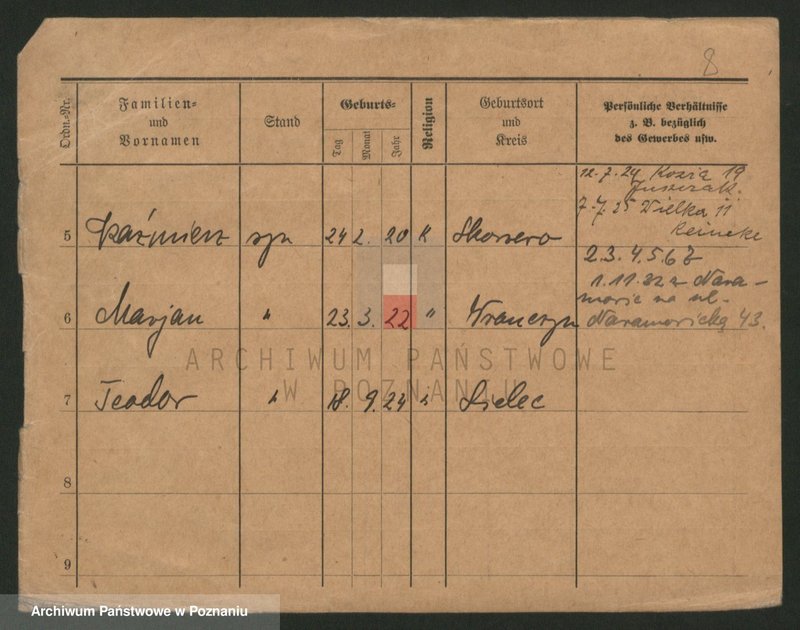 8
Ordn.-Nr.
Familien-
und
Vornamen
Stand
Geburts-
Tag
Monat
Jahr
Religion
Geburtsort
und
Kreis
Persönliche Verhältnisse
z. B. bezüglich
des Gewerbes usw.
12.7.24 Kozia 19
7.7.25 Wielka 11
Reineke
5 Kaźmierz syn 24 2. 20 K
2.3.4.5.6 7
1.11.32 z Nara-
6 Marjan " 23. 3. 22 "
Naramowicką 43.
7 Teodor " 18. 9. 24 " Sielec
8
9
ARCHIWUM PAŃSTWOWE
W POZNANIU
Archiwum Państwowe w Poznaniu